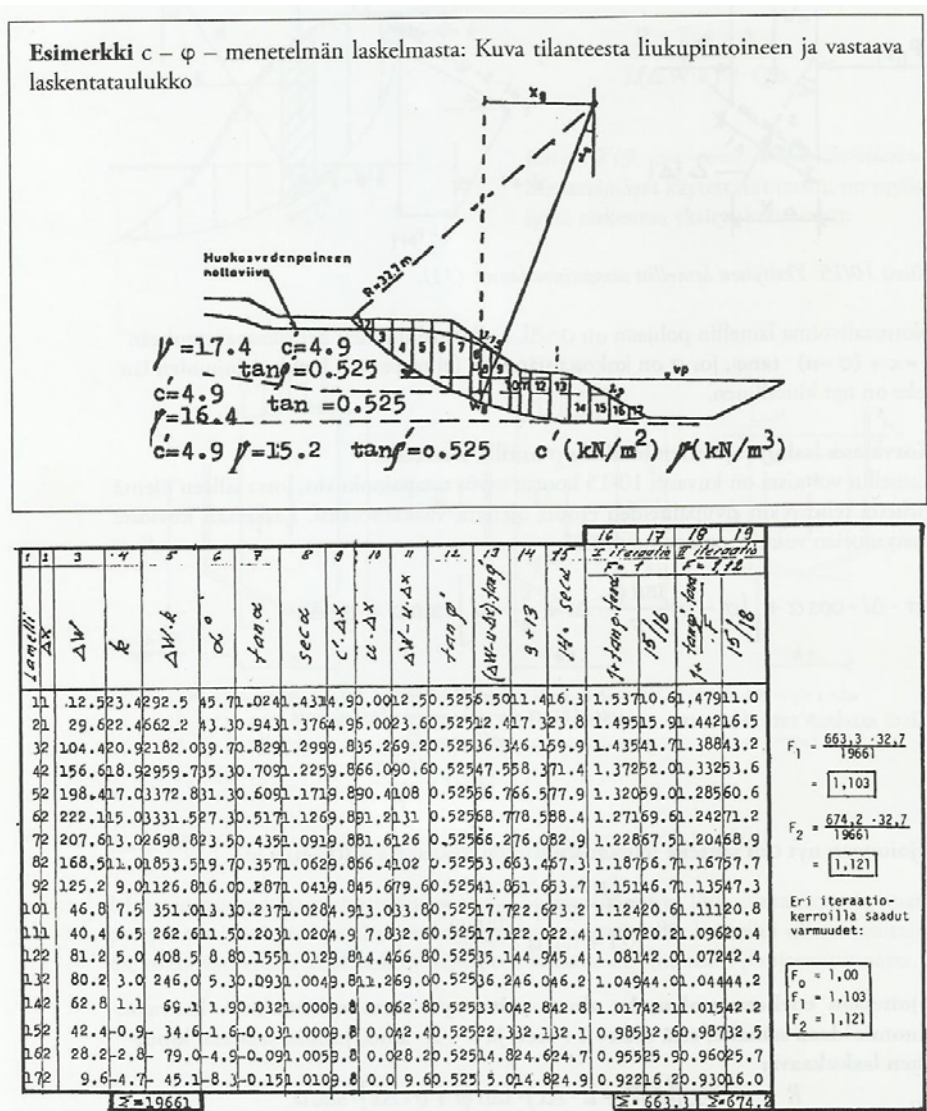 Esimerkki c – φ – menetelmän laskelmasta: Kuva tilanteesta liukupintoineen ja vastaava
laskentataulukko
Xg
R=32.7m
Huokosvedenpaineen
nollaviiva
γ=17.4 c'=4.9
tanφ=0.525
c'=4.9
tan =0.525
γ=16.4
c'=4.9 γ=15.2 tanφ'=0.525 c' (kN/m²) γ (kN/m³)
vp
1 2 3 4 5 6 7 8 9 10 11 12 13 14 15 16 17 18 19
I iteraatio II iteraatio
F=1 F=1,12
Lamelli ΔX ΔW k ΔW·k α° tan α sec α c'·Δx u·Δx ΔW-u·Δx tanφ' (ΔW-uΔx)·tanφ' 9+13 14·secα 1+tanφ·tanα 15/16 1+tanφ·tanα/F 15/18
1 1 12.5 23.4 292.5 45.7 1.024 1.431 4.9 0.00 12.5 0.525 6.50 11.4 16.3 1.537 10.6 1,479 11.0
2 1 29.6 22.4 662.2 43.3 0.943 1.376 4.9 6.00 23.6 0.525 12.4 17.3 23.8 1.495 15.9 1.442 16.5
3 2 104.4 20.9 2182.0 39.7 0.829 1.299 9.8 35.2 69.2 0.525 36.3 46.1 59.9 1.435 41.7 1.388 43.2
4 2 156.6 18.9 2959.7 35.3 0.709 1.225 9.8 66.0 90.6 0.525 47.5 58.3 71.4 1.372 52.0 1,332 53.6
5 2 198.4 17.0 3372.8 31.3 0.609 1.171 9.8 90.4 108 0.525 56.7 66.5 77.9 1.320 59.0 1.285 60.6
6 2 222.1 15.0 3331.5 27.3 0.517 1.126 9.8 91.2 131 0.525 68.7 78.5 88.4 1.271 69.6 1.242 71.2
7 2 207.6 13.0 2698.8 23.5 0.435 1.091 9.8 81.6 126 0.525 66.2 76.0 82.9 1.228 67.5 1.204 68.9
8 2 168,5 11.0 1853.5 19.7 0.357 1.062 9.8 66.4 102 0.525 53.6 63.4 67.3 1.187 56.7 1.167 57.7
9 2 125.2 9.0 1126.8 16.0 0.287 1.041 9.8 45.6 79.6 0.525 41.8 51.6 53.7 1.151 46.7 1.135 47.3
10 1 46.8 7.5 351.0 13.3 0.237 1.028 4.9 13.0 33.8 0.525 17.7 22.6 23.2 1.124 20.6 1.111 20.8
11 1 40,4 6.5 262.6 11.5 0.203 1.020 4.9 7.8 32.6 0.525 17.1 22.0 22.4 1.107 20.2 1.096 20.4
12 2 81.2 5.0 408.5 8.8 0.155 1.012 9.8 14.4 66.8 0.525 35.1 44.9 45.4 1.081 42.0 1.072 42.4
13 2 80.2 3.0 246.0 5.3 0.093 1.004 9.8 11.2 69.0 0.525 36.2 46.0 46.2 1.049 44.0 1.044 44.2
14 2 62.8 1.1 69.1 1.9 0.032 1.000 9.8 0.0 62.8 0.525 33.0 42.8 42.8 1.017 42.1 1.015 42.2
15 2 42.4 -0.9 - 34.6 -1.6 -0.03 1.000 9.8 0.0 42.4 0.525 22.3 32.1 32.1 0.985 32.6 0.987 32.5
16 2 28.2 -2.8 - 79.0 -4.9 -0.09 1.005 9.8 0.0 28.2 0.525 14.8 24.6 24.7 0.955 25.9 0.960 25.7
17 2 9.6 -4.7 - 45.1 -8.3 -0.15 1.010 9.8 0.0 9.6 0.525 5.0 14.8 24.9 0.922 16.2 0.930 16.0
Σ=19661 Σ=663.3 Σ=674.2
F1 = 663,3 · 32,7 / 19661
= 1,103
F2 = 674,2 · 32,7 / 19661
= 1,121
Eri iteraatio-
kerroilla saadut
varmuudet:
Fo = 1,00
F1 = 1,103
F2 = 1,121